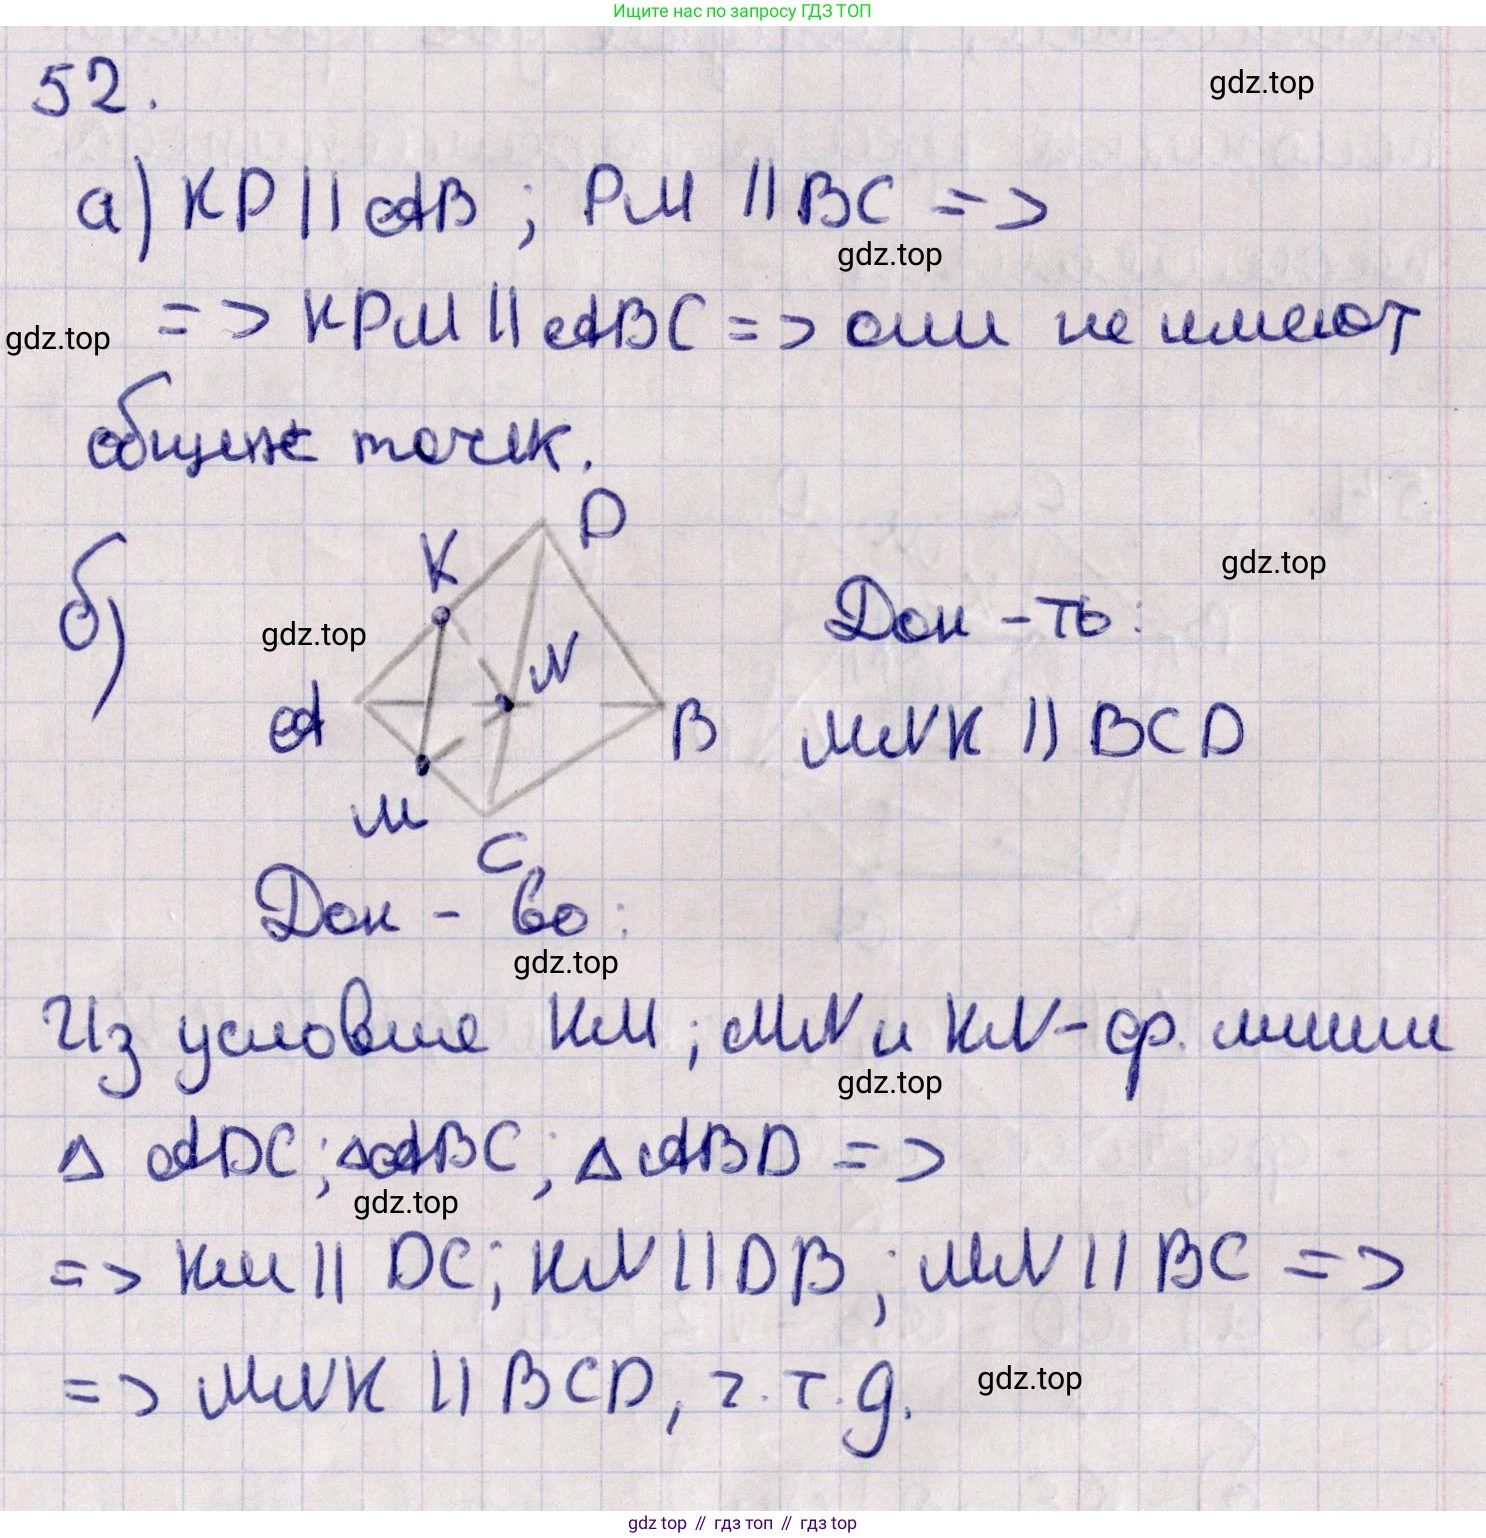 Ищите нас по запросу ГДЗ ТОП
52.
gdz.top
а) KP || AB ; PM || BC =>
gdz.top
=> KPM || ABC => они не имеют
gdz.top
общих точек.
б)
D
K
gdz.top
gdz.top
Док-ть:
N
A
B
MNK || BCD
M
C
Док-во:
gdz.top
Из условия KM; MN и KN - ср. линии
gdz.top
Δ ADC; Δ ABC; Δ ABD =>
gdz.top
=> KM || DC; KN || DB; MN || BC =>
=> MNK || BCD, ч.т.д.
gdz.top
gdz top // гдз топ // гдз top